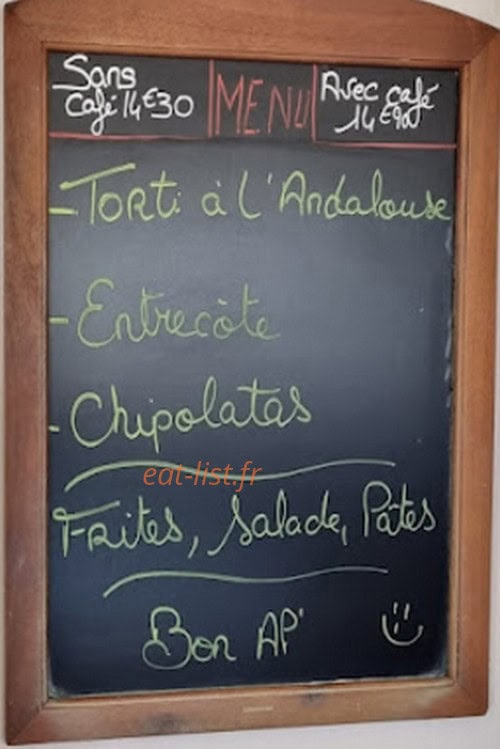 Sans
café 14€30
MENU
Avec café
14€90
- Torti à l'Andalouse
- Entrecôte
- Chipolatas
eat-list.fr
Frites, Salade, Pâtes
Bon AP'